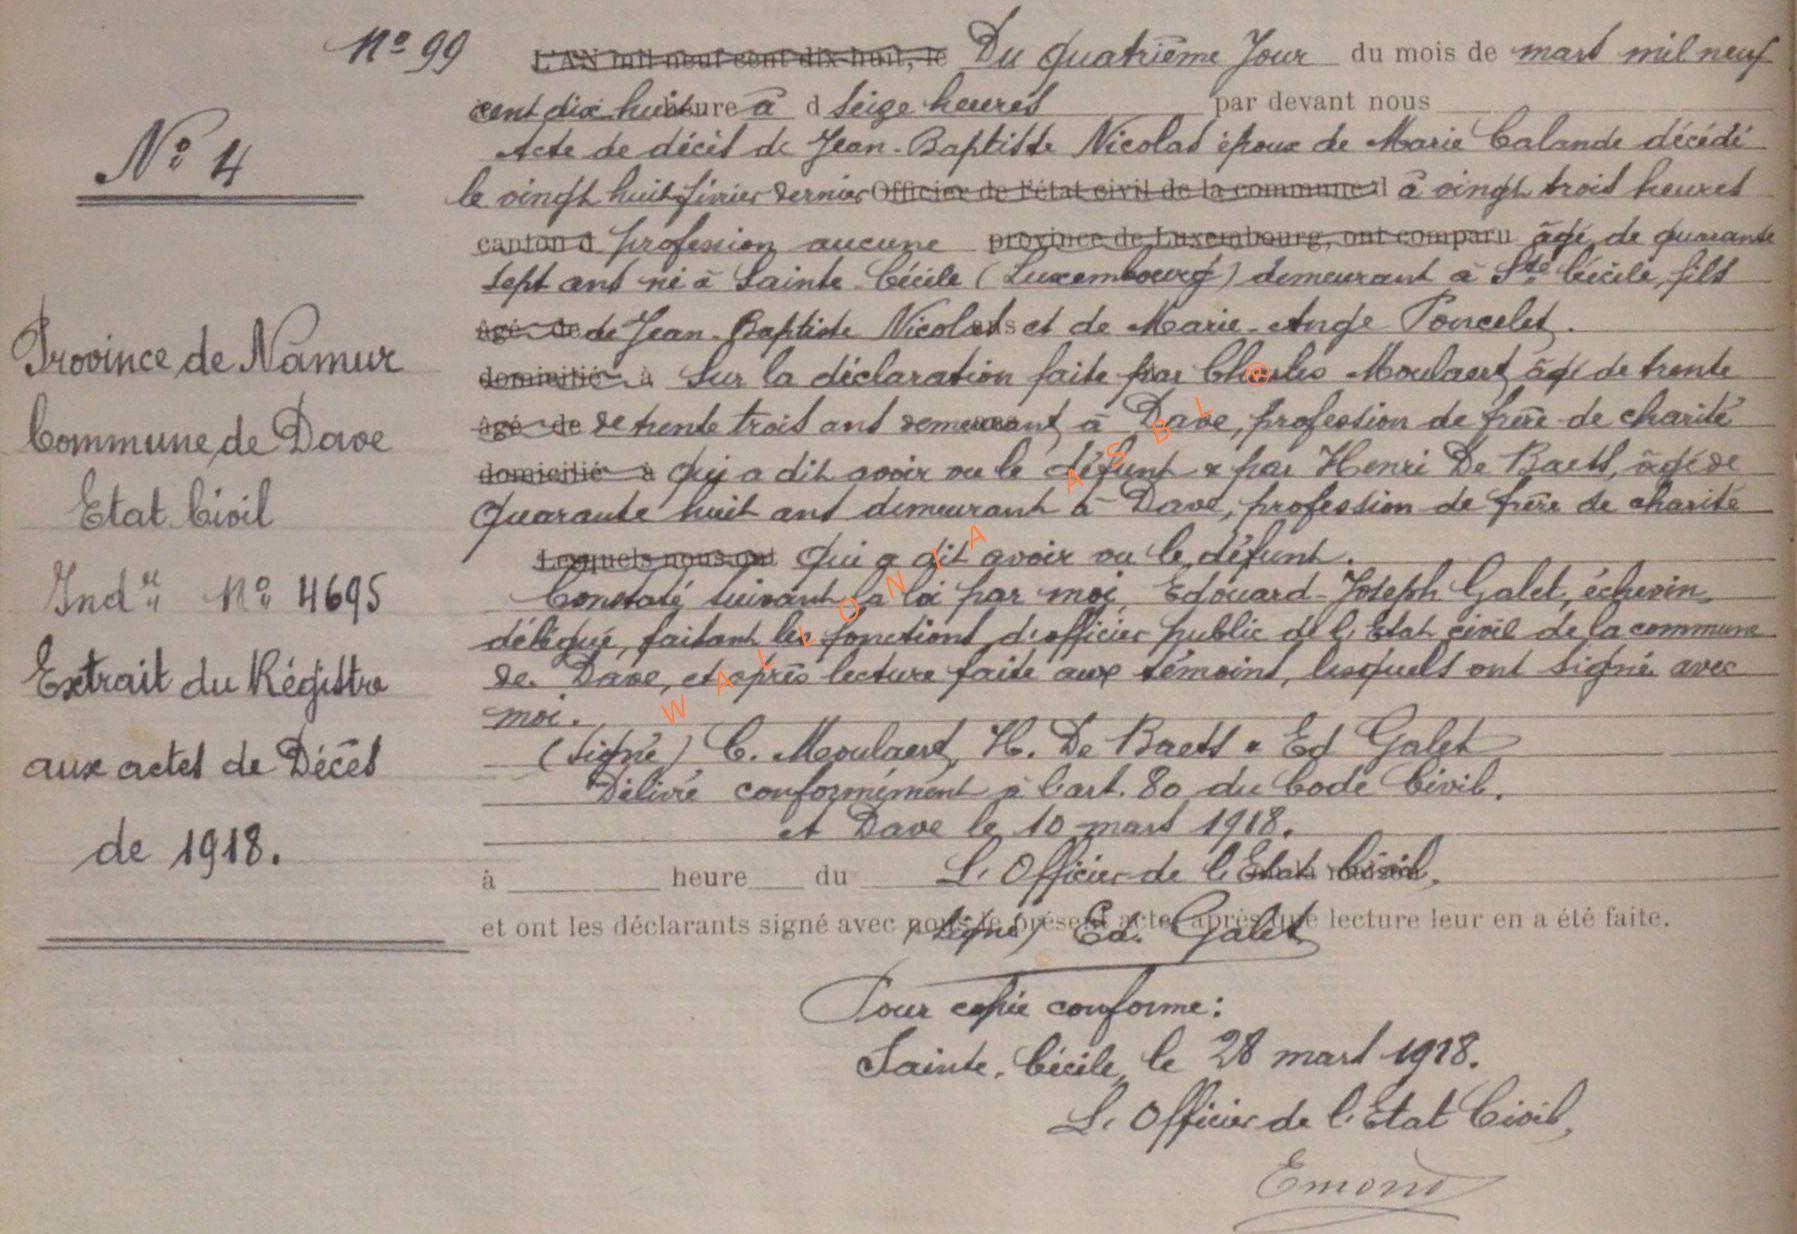 Nº 99
Nº 4
Province de Namur
Commune de Dave
Etat Civil
Indu Nº 4695
Extrait du Régistre
aux actes de Décès
de 1918.
L'AN mil neuf cent dix-huit, le Du quatrième Jour du mois de mars mil neuf
cent dix huit heure à d seize heures par devant nous
Acte de décès de Jean-Baptiste Nicolas époux de Marie Calande décédé
le vingt huit févrièr dernier Officier de l'état civil de la commune d à vingt trois heures
canton d profession aucune province de Luxembourg, ont comparu âgé de quarante
sept ans né à Sainte-Cécile (Luxembourg) demeurant à Ste Cécile, fils
âgé de de Jean-Baptiste Nicolas ans et de Marie-Ange Poncelet.
domicilié à Sur la déclaration faite par Charles Moulaert, âgé de trente
âgé de de trente trois ans demeurant à Dave, profession de frère de charité
domicilié à qui a dit avoir vu le défunt & par Henri De Baets, âgé de
quarante huit ans demeurant à Dave, profession de frère de charité
Lesquels nous ont qui a dit avoir vu le défunt.
Constaté suivant la loi par moi, Edouard-Joseph Galet, échevin
délégué, faisant les fonctions d'officier public de l'Etat civil de la commune
de Dave, et après lecture faite aux témoins, lesquels ont signé avec
moi.
(signé) C. Moulaert, H. De Baets & Ed Galet
Délivré conformément à l'art. 80 du Code Civil.
A Dave le 10 mars 1918.
à heure du L'Officier de l'Etat Civil,
et ont les déclarants signé avec nous le présent acte, après que lecture leur en a été faite.
(signé) Ed. Galet
Pour copie conforme:
Sainte-Cécile, le 28 mars 1918.
L'Officier de l'Etat Civil,
Emond
WALLONIA ASBL ®